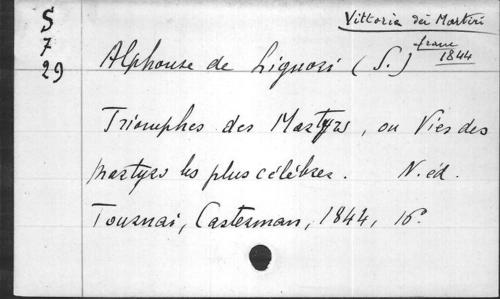 S
7
29
Vittoria dei Martiri
franc
1844
Alphonse de Liguori (S.)
Triomphes des Martyrs, ou Vies des
martyrs les plus célèbres. N. éd.
Tournai, Casterman, 1844, 16º